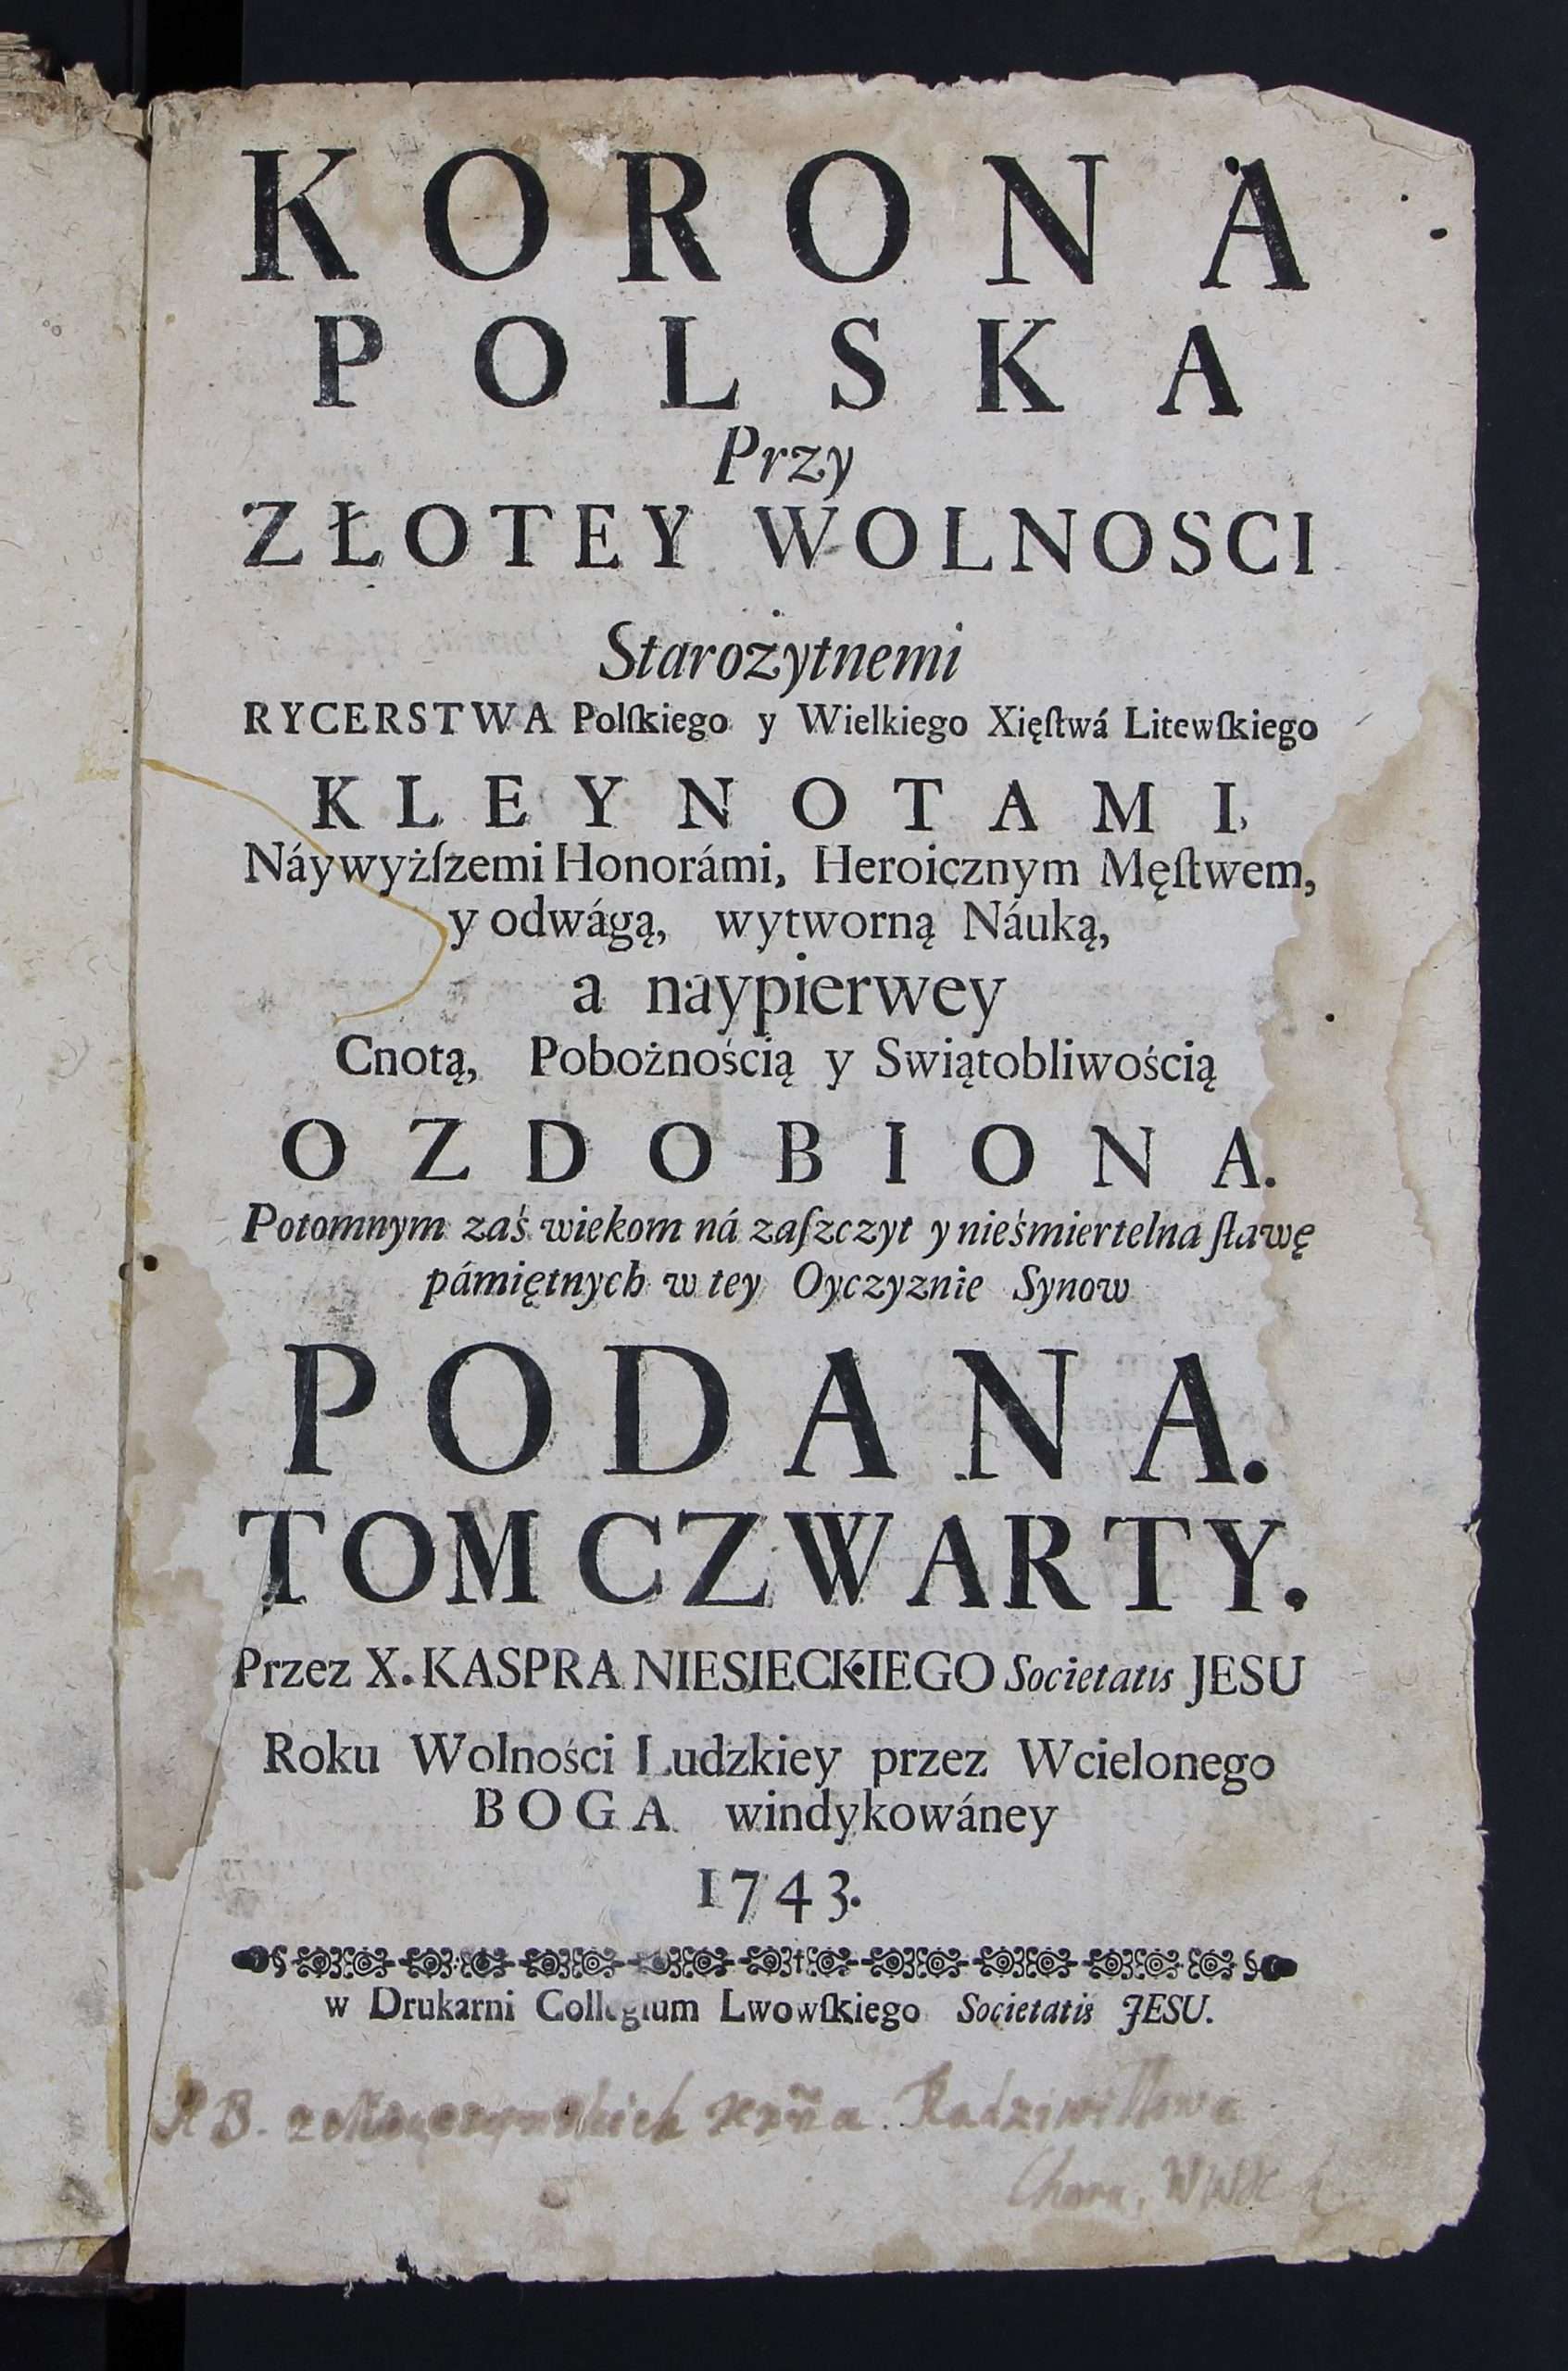 KORONA
POLSKA
Przy
ZŁOTEY WOLNOSCI
Starożytnemi
RYCERSTWA Polſkiego y Wielkiego Xięſtwá Litewſkiego
KLEYNOTAMI,
Náywyżſzemi Honorámi, Heroicznym Męſtwem,
y odwágą, wytworną Náuką,
a naypierwey
Cnotą, Pobożnością y Swiątobliwością
OZDOBIONA.
Potomnym zaś wiekom ná zaſzczyt y nieśmiertelna ſławę
pámiętnych w tey Oyczyznie Synow
PODANA.
TOM CZWARTY.
Przez X. KASPRA NIESIECKIEGO Societatis JESU
Roku Wolności Ludzkiey przez Wcielonego
BOGA windykowáney
1743.
w Drukarni Collegium Lwowſkiego Societatis JESU.
Radziwiłłowa